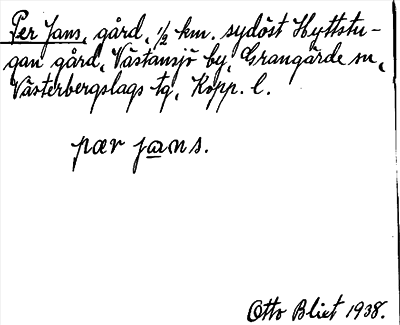 Per Jans, gård, ½ km. sydöst Hyttstu-
gan gård, Västansjö by, Grangärde sn,
Västerbergslags tg, Kopp. l.
pær jans.
Otto Blixt 1938.